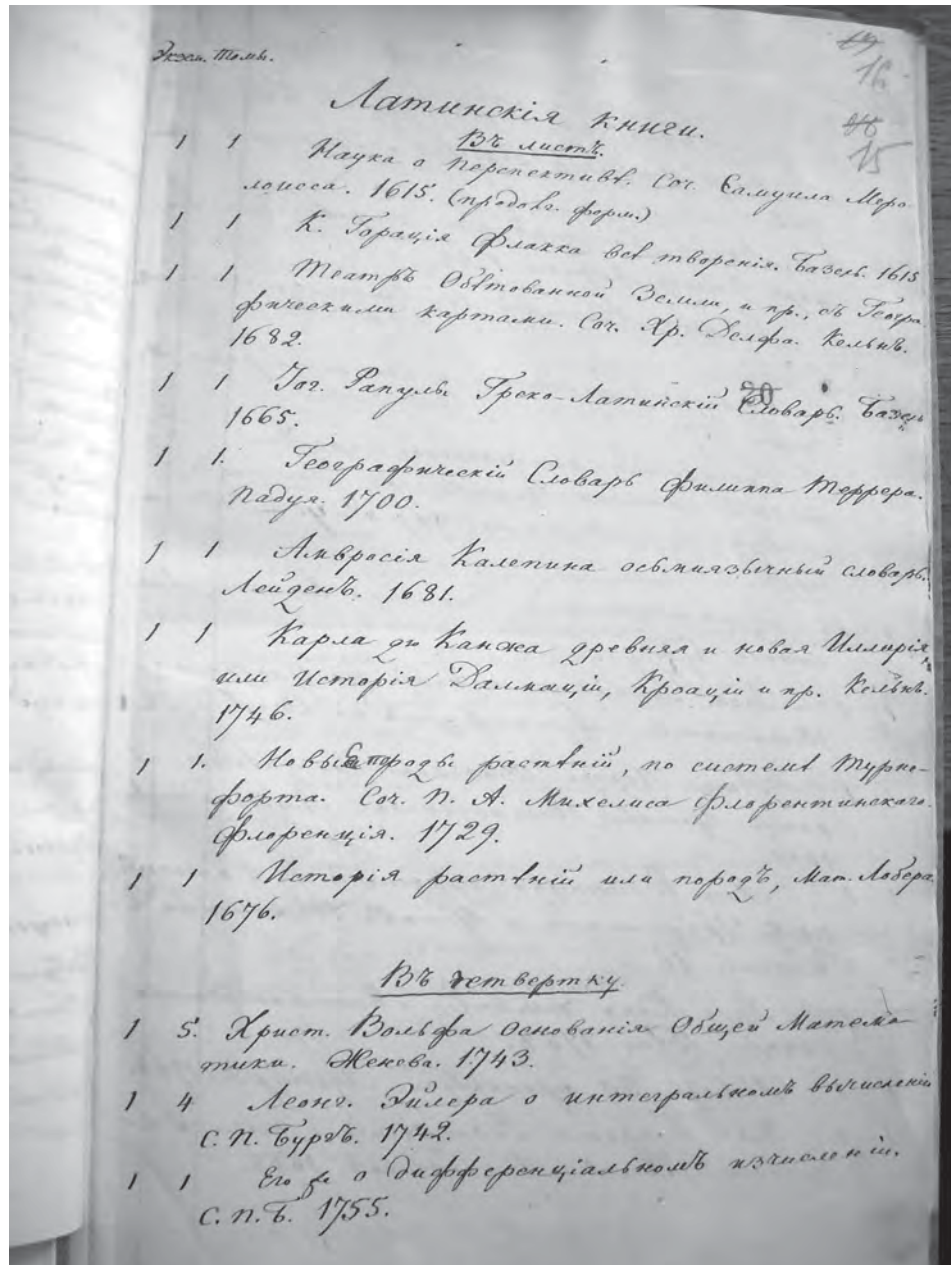 Экзем. Томы.
19
16
Латинскія книги.
18
15
Въ листъ.
1 1 Наука о перспективѣ. Соч. Самуила Меро
лоисса. 1615. (продолг. форм.)
1 1 К. Горація Флакка всѣ творенія. Базель. 1615
1 1 Театръ Обѣтованной Земли, и пр., съ Геогра
фическими картами. Соч. Хр. Делфа. Кельнъ.
1682.
1 1 Іог. Рапулы Греко-Латинскій Словарь. Базель
20
1665.
1 1. Географическій Словарь Филиппа Феррера.
Падуя. 1700.
1 1 Амвросія Калепина осьмиязычный словарь.
Лейденъ. 1681.
1 1 Карла дю Канжа древняя и новая Иллирія,
или Исторія Далмаціи, Кроаціи и пр. Кельнъ.
1746.
1 1. Новые роды растѣній, по системѣ Турне-
форта. Соч. П. А. Михелиса Флорентинскаго.
Флоренція. 1729.
1 1 Исторія растѣній или породъ, Мат. Лобера
1676.
Въ четвертку.
1 5. Христ. Вольфа основанія Общей Матема-
тики. Женева. 1743.
1 4 Леонг. Эйлера о интегральномъ вычисленіи
С. П. Бургъ. 1742.
1 1 Его же о дифференціальномъ изчисленіи.
С. П. Б. 1755.